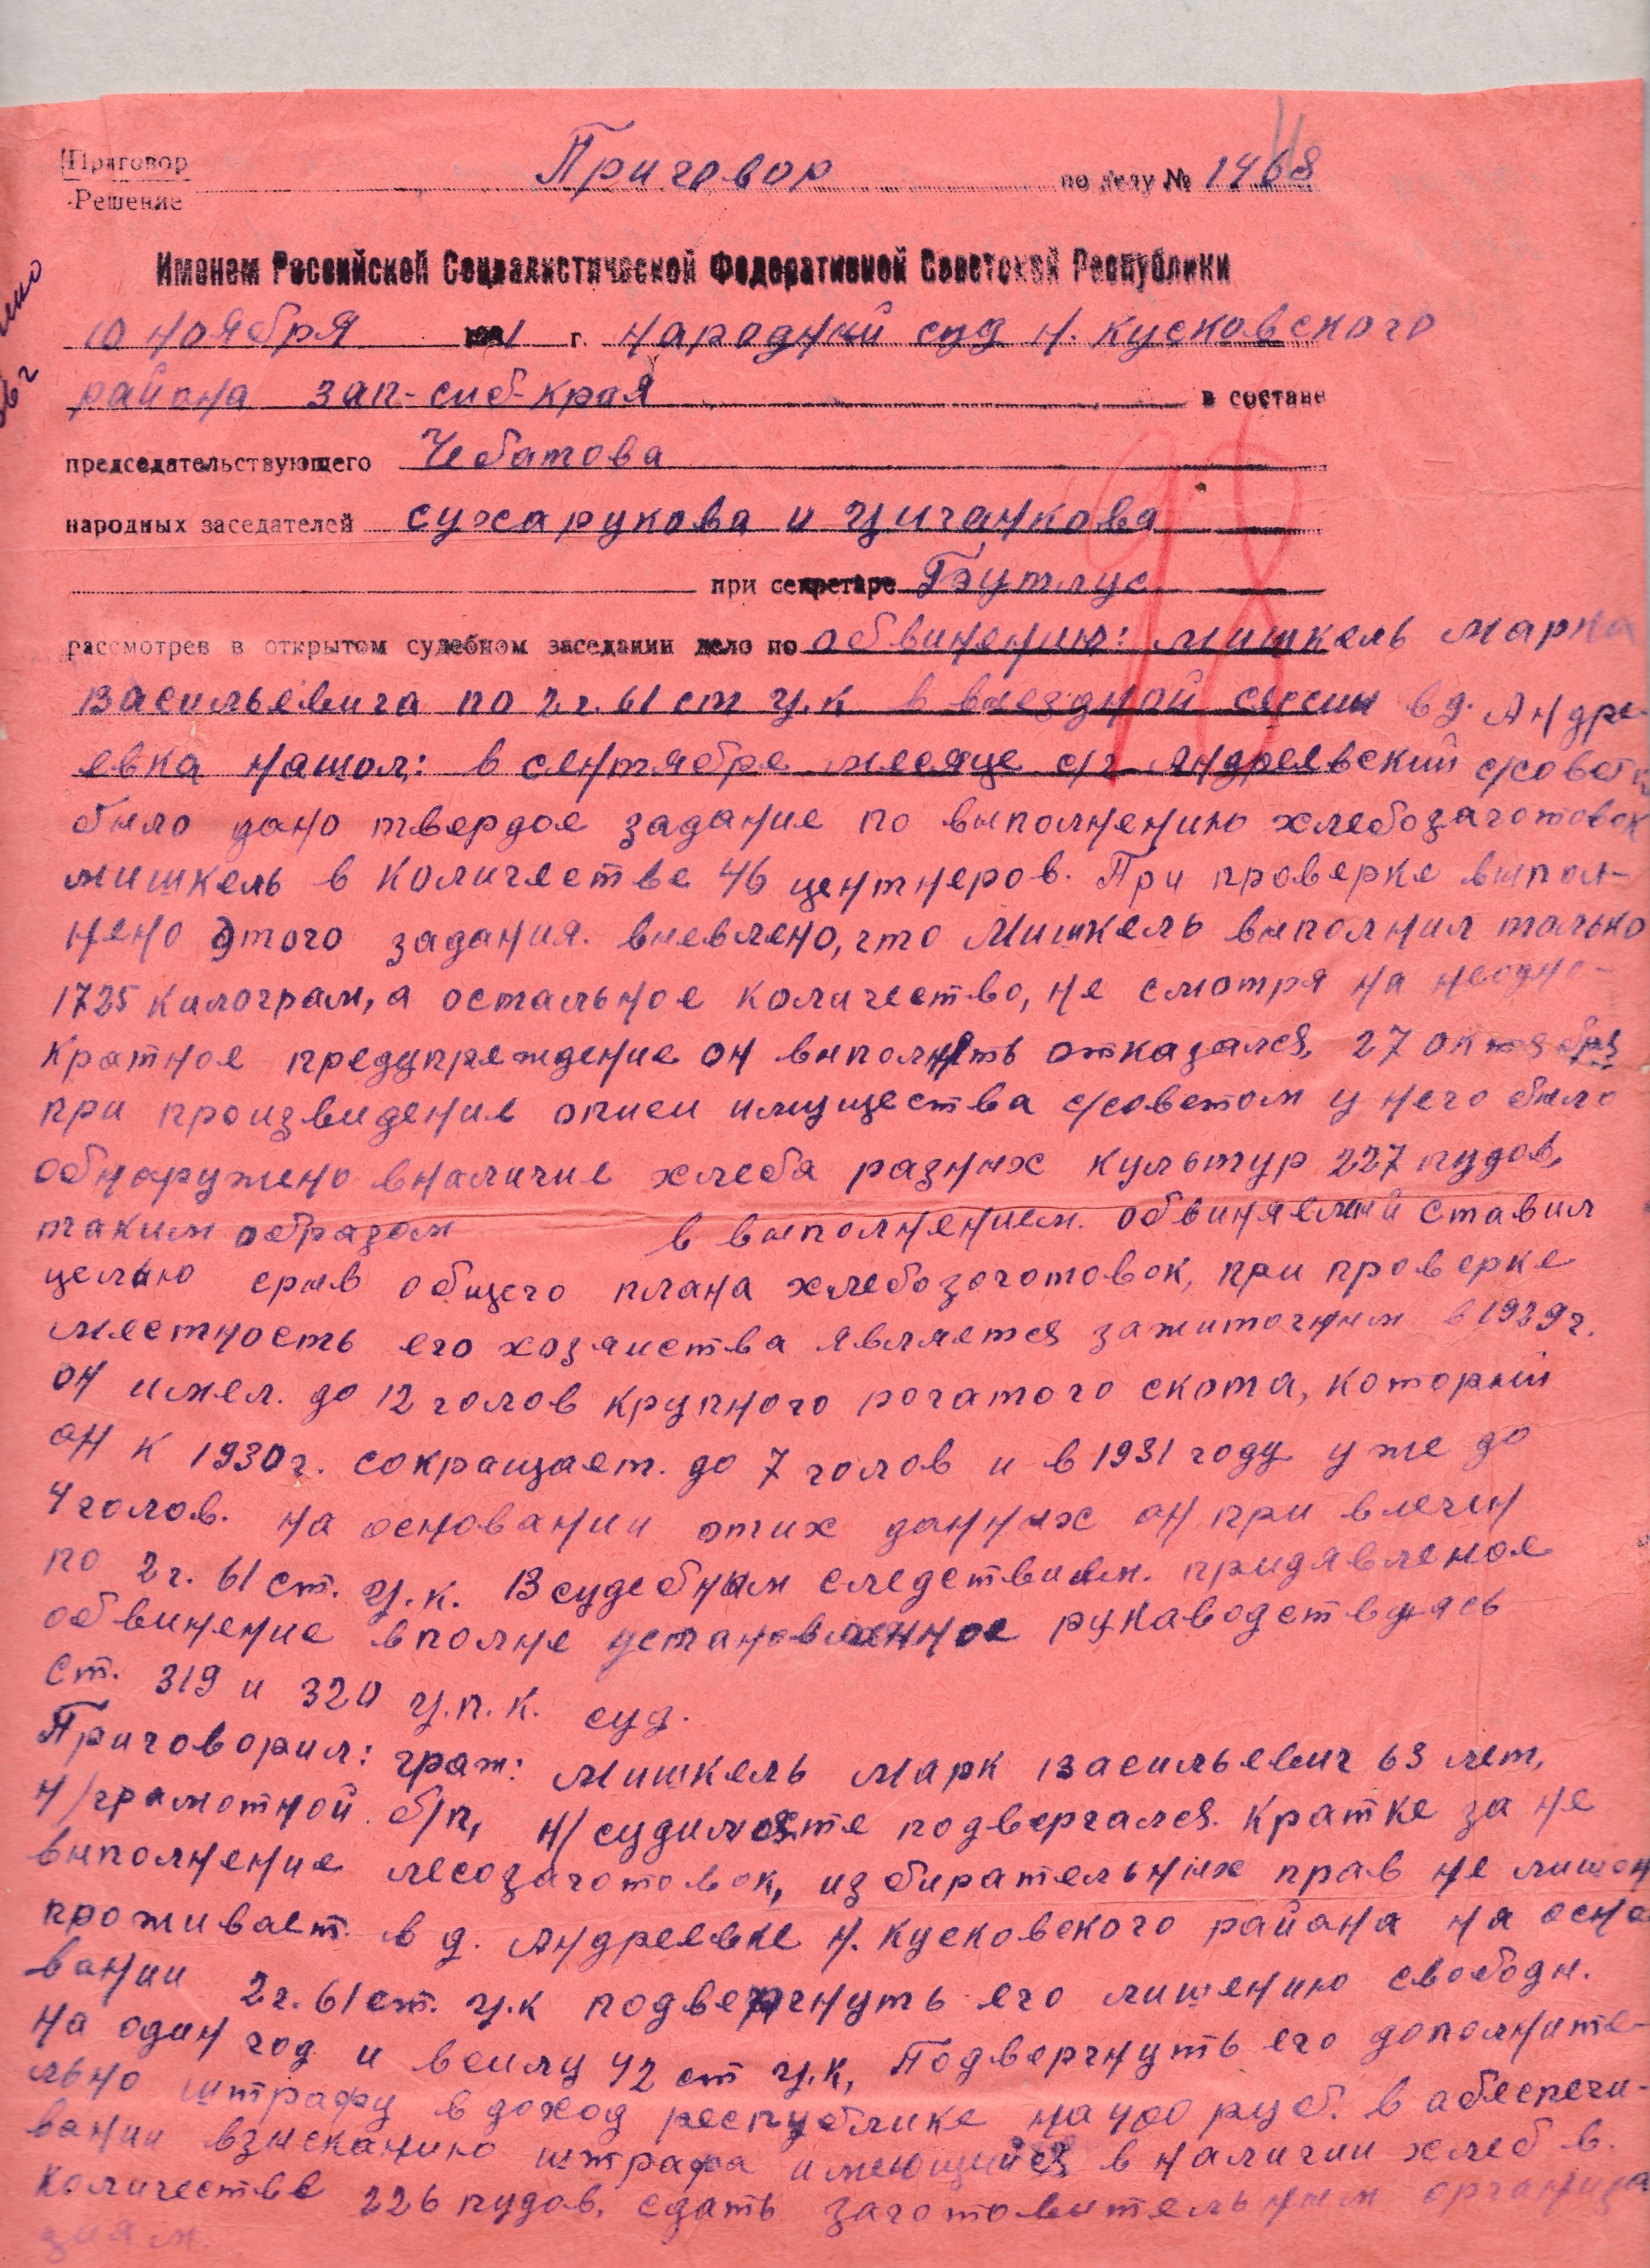 Приговор
Решение
Приговор по делу № 1468
Именем Российской Социалистической Федеративной Советской Республики
10 ноября 1931 г. народный суд н. кусковского
района зап-сиб-края в составе
председательствующего Чебатова
народных заседателей сухарукова и цыганкова
при секретаре Бутлус
рассмотрев в открытом судебном заседании дело по обвинению: мишкель марка
васильевича по 2 ч. 61 ст у.к в выездной сессии в д. Андре-
евка нашол: в сентябре месяце с/г Андреевский с/совет
было дано твердое задание по выполнению хлебозаготовок
мишкель в количестве 46 центнеров. При проверке выпол-
нено этого задания. выевлено, что Мишкель выполнил только
1725 килограм, а остальное количество, не смотря на неодно-
кратное предупреждение он выполнять отказался, 27 октября
при произведение описи имущества с/советом у него было
обнаружено вналичие хлеба разных культур 227 пудов,
таким образом в выполнением. обвиняемый ставил
целью срыв общего плана хлебозоготовок, при проверке
местность его хозяиства является зажиточным в 1929 г.
он имел. до 12 голов крупного рогатого скота, который
он к 1930 г. сокращает. до 7 голов и в 1931 году уже до
4 голов. на основании этих данных он при влечен
по 2 ч. 61 ст. у.к. В судебным следствием. придявленое
обвинение вполне установленное руководствуясь
ст. 319 и 320 у.п.к. суд.
Приговорил: граж: мишкель марк васильевич 63 лет,
н/грамотной б/п, н/ судимосте подвергался. кратке за не
выполнение лесозаготовок, избирательных прав не лишон
проживает. в д. Андреевке н. кусковского района на осно
вании 2 ч. 61 ст. у.к подвергнуть его лишению свободы.
на один год и всилу 42 ст у.к, Подвергнуть его дополните-
льно штрафу в доход республике на 400 руб. в абеспечи-
вании взысканию штрафа имеющийся в наличии хлеб в.
количестве 226 пудов, сдать заготовительным организа
циям.